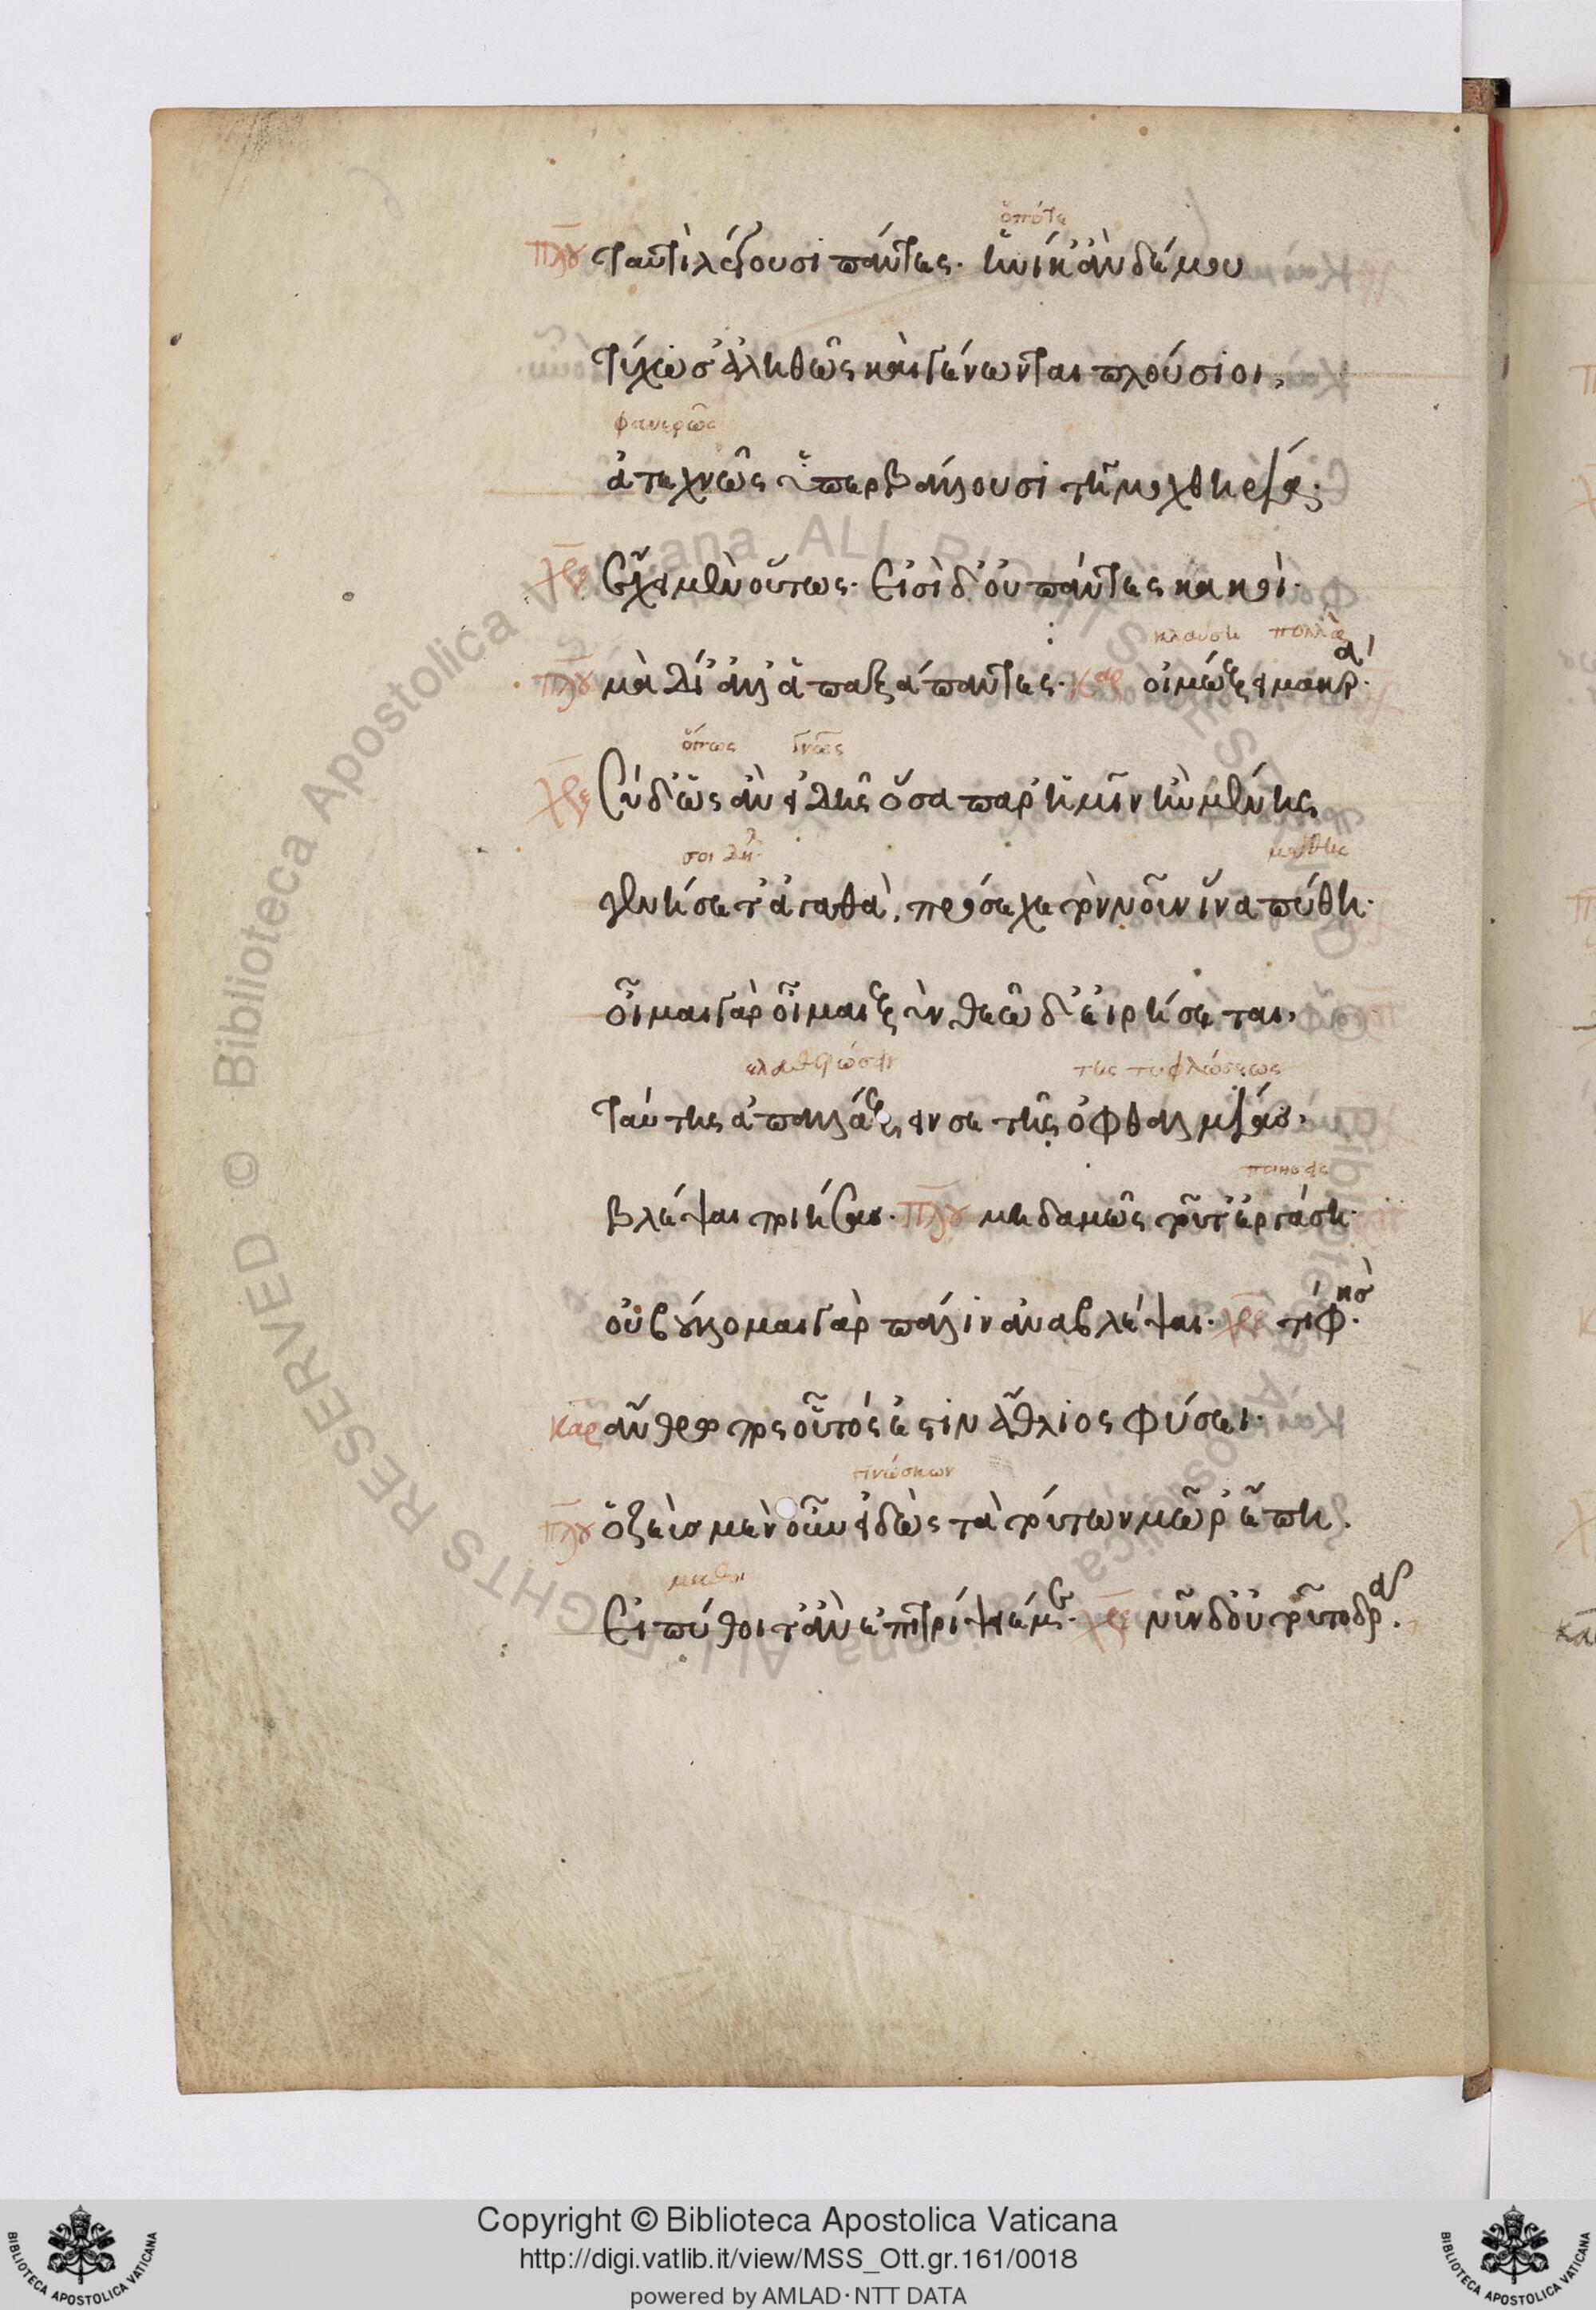 ὁπότε
πλου ταυτὶ λέγουσι πάντες· ἡνίκ' ἂν δέ μου
τύχωσ' ἀληθῶς καὶ γένωνται πλούσιοι,
φανερῶς
ἀτεχνῶς ὑπερβάλλουσι τῇ μοχθηρίᾳ·
χρε Ἔχει μὲν οὕτως· Εἰσὶ δ' οὐ πάντες κακοί·
κλαύσῃ πολλὰ
πλου μὰ Δί' ἀλλ' ἁπαξάπαντες· καρ οἰμώξει μακρά·
ὅπως γνῷς
χρε Σὺ δ' ὡς ἂν εἰδῇς ὅσα παρ' ἡμῖν ἢν μένῃς
σοι δη
γενήσετ' ἀγαθὰ, πρόσεχε τὸν νοῦν ἵνα πύθῃ·
οἶμαι γὰρ οἶμαι ξὺν θεῷ δ' εἰρήσεται,
ἐλευθερώσειν τῆς τυφλώσεως
ταύτης ἀπαλλάξειν σε τῆς ὀφθαλμίας,
ποιήσῃς
βλέψαι ποιήσας· πλου μηδαμῶς τοῦτ' ἐργάσῃ·
οὐ βούλομαι γὰρ πάλιν ἀναβλέψαι· χρε τί φῄς·
καρ ἄνθρωπος οὗτός ἐστιν ἄθλιος φύσει·
γινώσκων
πλου ὁ ζεὺς μὲν οὖν εἰδὼς τὰ τούτων μῶρ' ἔπη.
Εἰ πύθοιτ' ἂν ἐπιτρίψειέ με· χρε νῦν δ' οὐ τοῦτο δρᾷ.
Copyright © Biblioteca Apostolica Vaticana
http://digi.vatlib.it/view/MSS_Ott.gr.161/0018
powered by AMLAD·NTT DATA
BIBLIOTECA APOSTOLICA VATICANA
BIBLIOTECA APOSTOLICA VATICANA